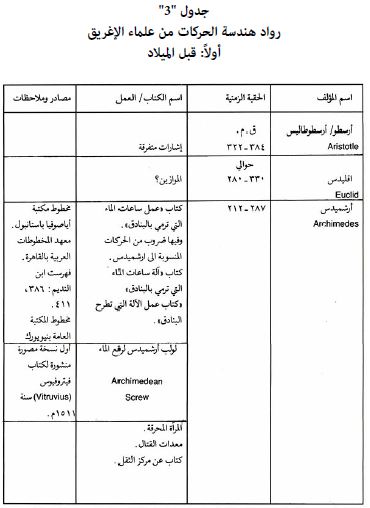 جدول "3"
رواد هندسة الحركات من علماء الإغريق
أولاً: قبل الميلاد
اسم المؤلف
الحقبة الزمنية
اسم الكتاب/ العمل
مصادر وملاحظات
أرسطو/ أرسطوطاليس
Aristotle
ق.م.
٣٨٤-٣٢٢
إشارات متفرقة
اقليدس
Euclid
حوالي
٣٣٠-٢٨٠
الموازين؟
أرشميدس
Archimedes
٢٨٧-٢١٢
كتاب «عمل ساعات الماء
التي ترمي بالبنادق».
وفيها ضروب من الحركات
المنسوبة الى ارشميدس.
كتاب «آلة ساعات الماء
التي ترمي بالبنادق»
«كتاب عمل الآلة التي تطرح
البنادق»
مخطوط مكتبة
أياصوفيا باستانبول.
معهد المخطوطات
العربية بالقاهرة.
فهرست ابن
النديم: ٣٨٦،
٤١١.
مخطوط المكتبة
العامة بنيويورك
لولب أرشميدس لرفع الماء
Archimedean
Screw
أول نسخة مصورة
منشورة لكتاب
فيتروفيوس
(Vitruvius) سنة
١٥١١م.
المرآة المحرقة.
معدات القتال.
كتاب عن مركز الثقل.